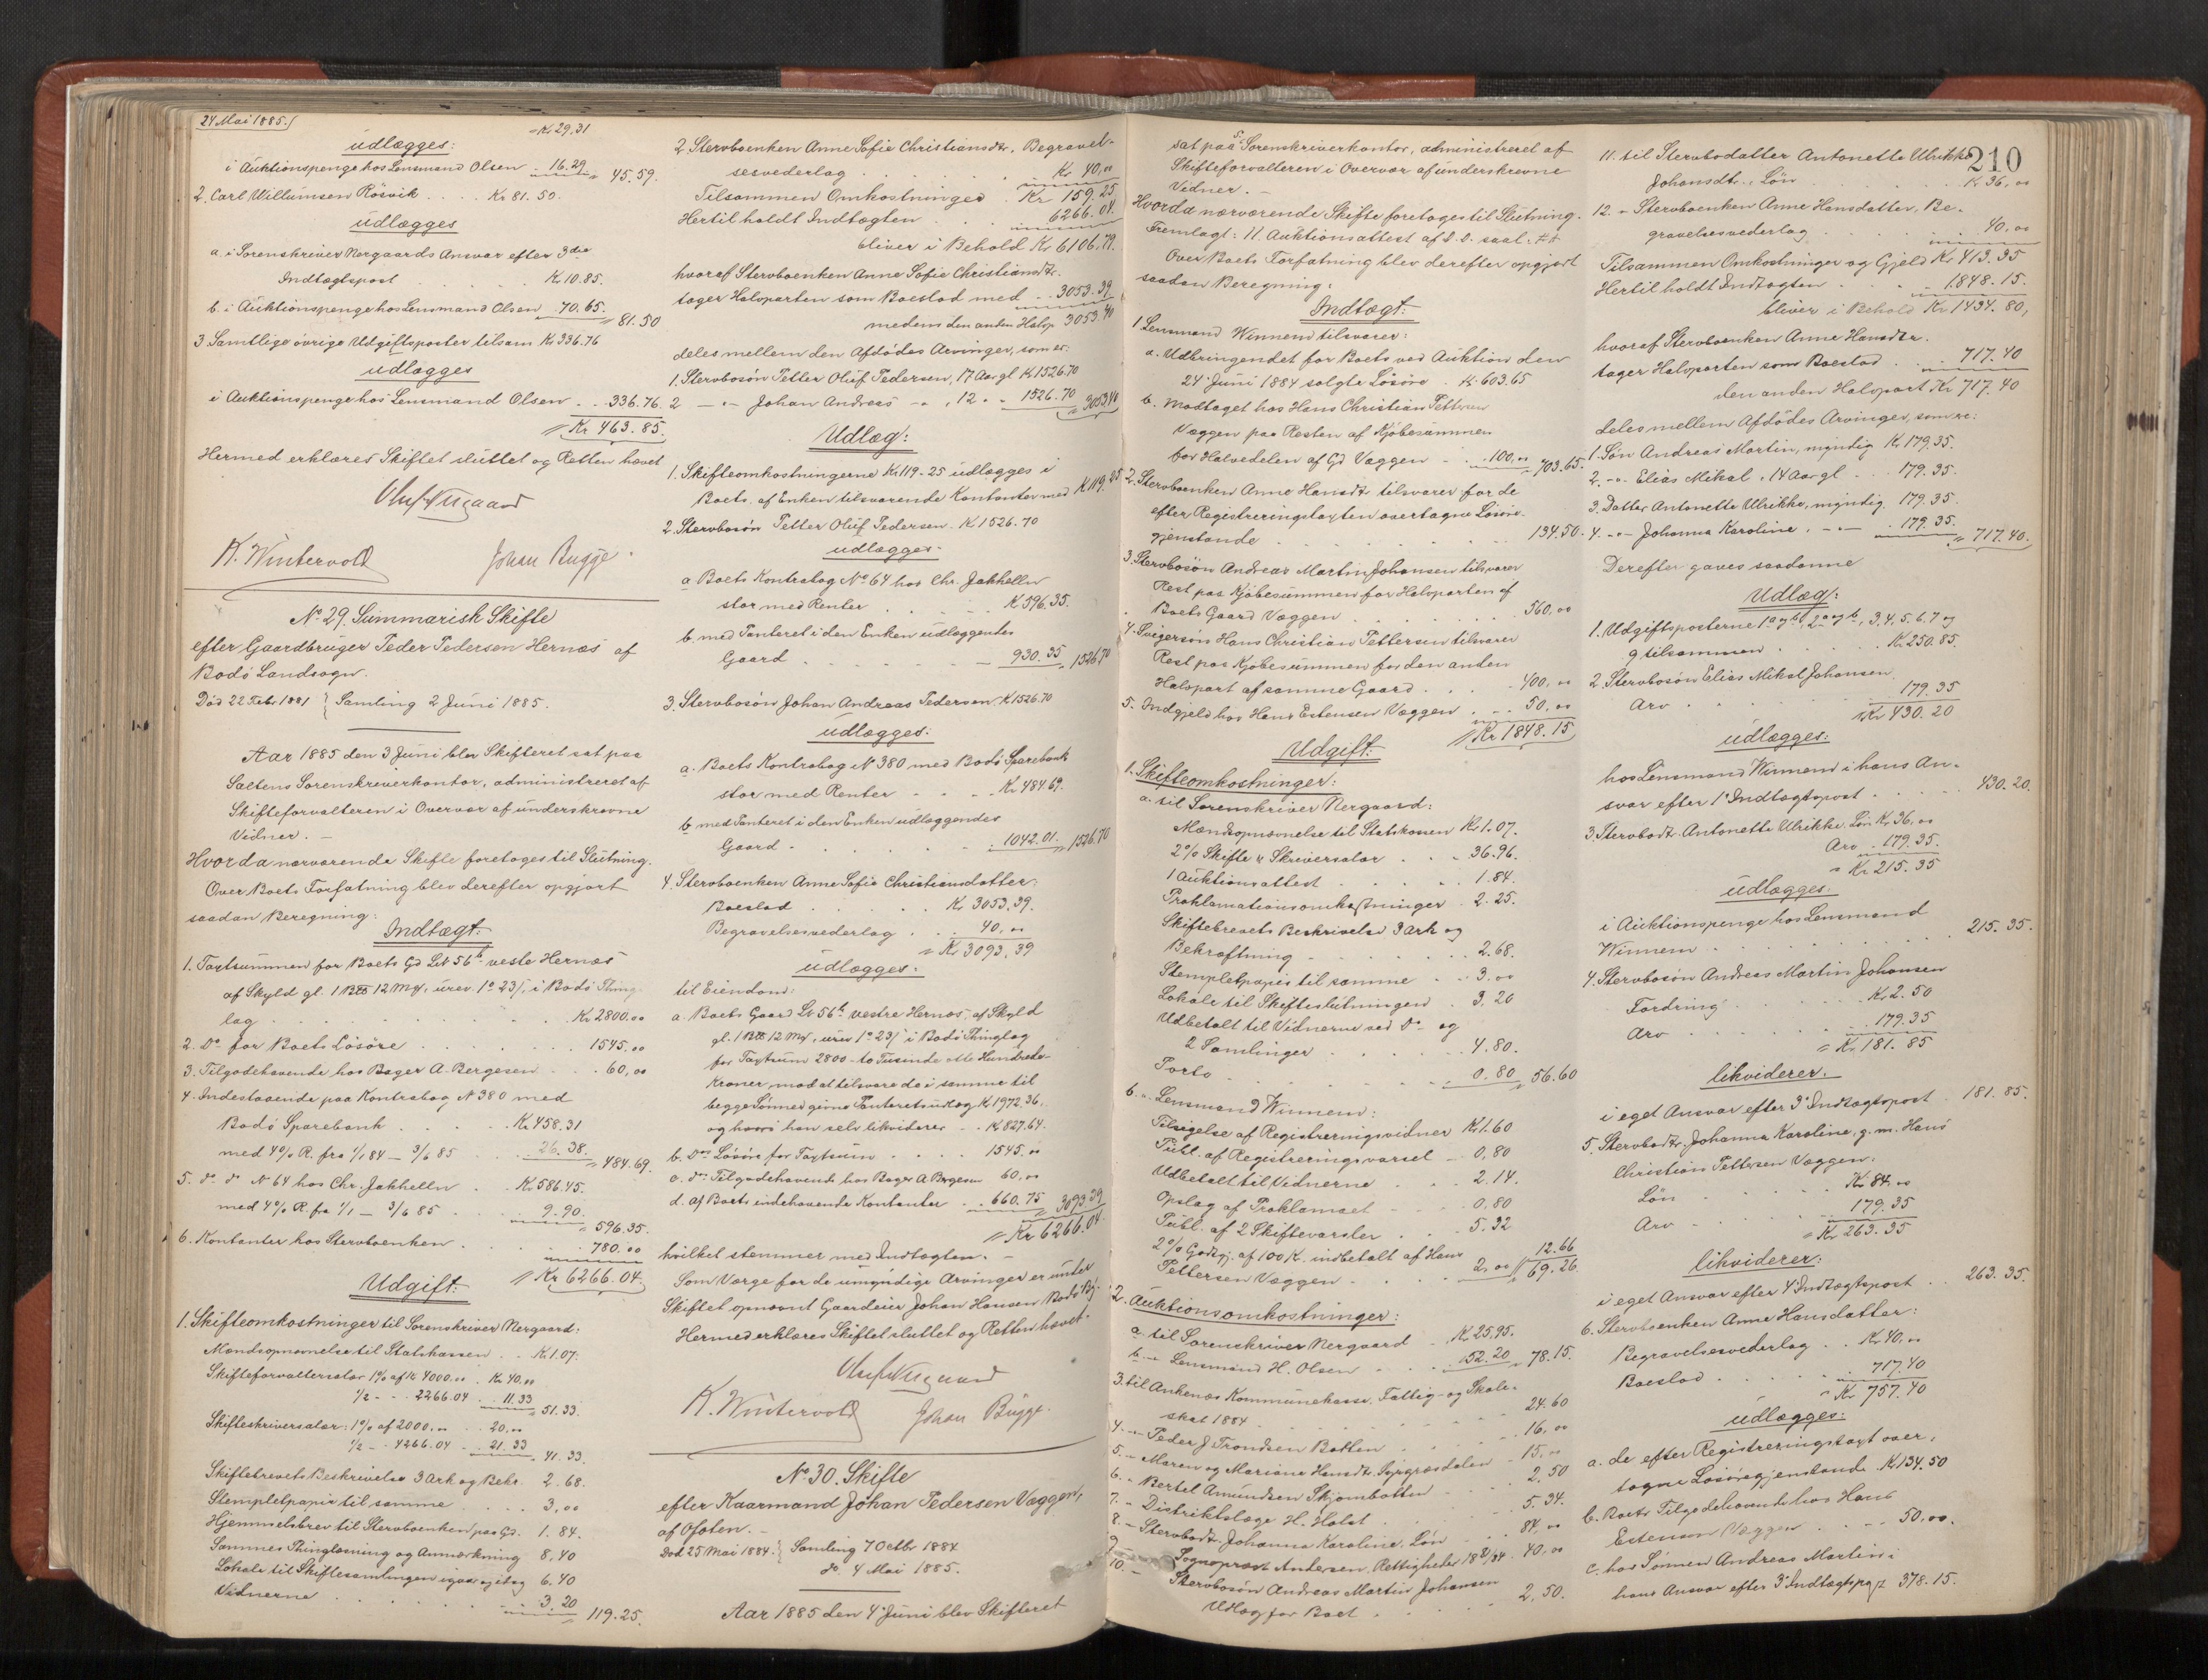 24 Mai 1885.)
= Kr 29.31
udlægges:
i Auktionspenge hos Lensmand Olsen . 16.29 = 45.59.
2. Carl Willumsen Rösvik . . . Kr 81.50.
udlægges
a. i Sorenskriver Nergaards Ansvar efter 3die
Indtægtspost . . . Kr 10.85.
b. i Auktionspenge hos Lensmand Olsen . 70.65. = 81.50
3. Samtlige övrige Udgiftsposter tilsam. Kr 336.76
udlægges
i Auktionspenge hos Lensmand Olsen . . 336.76.
= Kr 463.85.
Hermed erklæres Skiftet sluttet og Retten hævet
Oluf Nergaard
K. Wintervold Johan Bugge.
No 29. Summarisk Skifte
efter Gaardbruger Peder Pedersen Hernæs af
Bodö Landsogn.
Död 22 Febr 1881 } Samling 2 Juni 1885.
Aar 1885 den 3 Juni blev Skifteret sat paa
Saltens Sorenskriverkontor, administreret af
Skifteforvalteren i Overvær af underskrevne
Vidner. —
Hvorda nærværende Skifte foretoges til Slutning.
Over Boets Forfatning blev derefter opgjort
saadan Beregning:
Indtægt:
1. Taxtsummen for Boets Gd Lb 56b vestre Hernæs
af Skyld gl. 1 Bts 12 Mk, urev. 1 . 23/, i Bodö Thing-
lag . . . Kr 2800.00
2. Do for Boets Lösöre . . . 1545.00
3. Tilgodehavende hos Bager A. Bergesen . . . 60,00
4. Indestaaende paa Kontrabog N 380 med
Bodö Sparebank . . . Kr 458.31
med 4% R. fra 1/1 84 — 3/6 85 . . 26.38. = 484.69.
5. do do N 64 hos Chr. Jakhelln . . Kr 586.45.
med 4% R. fra 1/1 — 3/6 85 . . . 9.90. = 596.35.
6. Kontanter hos Stervboenken . . . 780.00
= Kr 6266.04.
Udgift:
1. Skifteomkostninger til Sorenskriver Nergaard:
Mændsopnævnelse til Statskassen . . Kr 1.07.
Skifteforvaltersalær 1% af Kr 4000.00 . Kr 40.00
1/2 - - . 2266.04 . . 11.33 = 51.33.
Skifteskriversalær: 1% af 2000.00 . . 20.00
1/2 - . 4266.04 . . 21.33 = 41.33.
Skiftebrevets Beskrivelse 3 Ark og Bekr. 2.68.
Stempletpapir til samme . . . 3,00
Hjemmelsbrev til Stervboenken paa Gd. 1.84.
Sammes Thinglæsning og Anmærkning 8,40
Lokale til Skiftesamlingen igaar og idag 6.40
Vidnerne . . . 3.20 = 119.25.
2. Stervboenken Anne Sofie Christiansdtr. Begravel-
sesvederlag . . . Kr 40,00
Tilsammen Omkostninger . Kr 159.25
Hertil holdt Indtægten . . 6266.04.
bliver i Behold Kr 6106.79.
hvoraf Stervboenken Anne Sofie Christiansdtr.
tager Halvparten som Boeslod med . . 3053.39
medens den anden Halvp. 3053.40
deles mellem den Afdödes Arvinger, som er:
1. Stervbosön Petter Oluf Pedersen, 17 Aar gl. Kr 1526.70
2 — „ — Johan Andreas — „ . 12 „ . 1526.70 = 3053.40
Udlæg:
1. Skifteomkostningerne Kr 119-25 udlægges i
Boets, af Enken tilsvarende Kontanter med Kr 119.25
2. Stervbosön Petter Oluf Pedersen . Kr 1526.70
udlægges:
a. Boets Kontrabog No 64 hos Chr. Jakhelln
stor med Renter . . . Kr 596.35.
b. med Panteret i den Enken udlæggendes
Gaard . . . 930.35 = 1526.70
3. Stervbosön Johan Andreas Pedersen. Kr 1526.70
udlægges:
a. Boets Kontrabog N 380 med Bodö Sparebank
stor med Renter . . . Kr 484.69.
b. med Panteret i den Enken udlæggendes
Gaard . . . 1042.01. = 1526.70
4. Stervboenken Anne Sofie Christiansdatter:
Boeslod . . . Kr 3053.39.
Begravelsesvederlag . . 40.00
= Kr 3093.39
udlægges:
til Eiendom:
a. Boets Gaard Lb 56b vestre Hernæs, af Skyld
gl. 1 Bts 12 Mk, urev 1 . 23/ i Bodö Thinglag
for Taxtsum 2800 - to Tusinde otte Hundrede-
Kroner, mod at tilsvare de i samme til
begge Sönner givne Panteretsudlæg Kr 1972.36.
og hvori hun selv likviderer . . Kr 827.64.
b. Dos Lösöre for Taxtsum . . . 1545.00
c. dos Tilgodehavende hos Bager A Bergesen 60,00
d. af Boets indehavende Kontanter . . 660.75 = 3093.39
= Kr 6266.04.
hvilket stemmer med Indtægten. —
Som Værge for de umyndige Arvinger er under
Skiftet opnævnt Gaardeier Johan Hansen Bodö
Hermed erklæres Skiftet sluttet og Retten hævet.
Oluf Nergaard
K. Wintervold Johan Bugge.
No 30. Skifte
efter Kaarmand Johan Pedersen Væggen,
af Ofoten. —
Död 25 Mai 1884. } Samling 7 Octbr 1884
do. 4 Mai 1885.
Aar 1885 den 4 Juni blev Skifteret
210
sat paa S. Sorenskriverkontor, administreret af
Skifteforvalteren i Overvær af underskrevne
Vidner. —
Hvorda nærværende Skifte foretoges til Slutning.
Fremlagt: 11. Auktionsattest af D. D. saal.
Over Boets Forfatning blev derefter opgjort
saadan Beregning:
Indtægt:
1. Lensmand Winnem tilsvarer:
a. Udbringendet for Boets ved Auktion den
24 Juni 1884 solgte Lösöre . Kr 603.65
b. Modtaget hos Hans Christian Pettersen
Væggen paa Resten af Kjöbesummen
for Halvedelen af Gd Væggen . . 100,00 = 703.65.
2. Stervboenken Anne Hansdtr tilsvarer for de
efter Registreringstaxten overtagne Lösöre-
gjenstande . . . 134.50.
3. Stervbosön Andreas Martin Johansen tilsvarer
Rest paa Kjöbesummen for Halvparten af
Boets Gaard Væggen . . . 560,00
4. Svigersön Hans Christian Pettersen tilsvarer
Rest paa Kjöbesummen for den anden
Halvpart af samme Gaard . . . 400,00
5. Indgjeld hos Hans Estensen Væggen . . . 50,00
= Kr 1848.15
Udgift:
1. Skifteomkostninger:
a. til Sorenskriver Nergaard:
Mændsopnævnelse til Statskassen Kr 1.07.
2% Skifte & Skriversalær . . . 36.96.
1 Auktionsattest . . . 1.84.
Proklamationsomkostninger . 2.25.
Skiftebrevets Beskrivelse 3 Ark og
Bekræftning . . . 2.68.
Stempletpapir til samme . . 3,00
Lokale til Skifteslutningen . 3.20
Udbetalt til Vidnerne ved Do og
2 Samlinger . . . 4.80.
Porto . . . 0.80 = 56.60
b. „ Lensmand Winnem:
Tilsigelse af Registreringsvidner Kr 1.60
Publ. af Registreringsvarsel . . 0,80
Udbetalt til Vidnerne . . . 2.14.
Opslag af Proklamaet . . . 0,80
Publ. af 2 Skiftevarsler . . . 5.32
12.66
2% Godtgj. af 100 Kr. indbetalt af Hans
Pettersen Væggen . . . 2,00 = 69.26
2. Auktionsomkostninger:
a. til Sorenskriver Nergaard . Kr 25.95.
b. — Lensmand H. Olsen . . . 52.20 = 78.15.
3. til Ankenæs Kommunekasse, Fattig- og Skole-
skat 1884 . . . 24.60
4. — Peder J Trondsen Botten . . . 16,00
5. — Maren og Mariane Hansdtr. . . 15,00
6. „ Bertel Amundsen Skjombotten . . . 2.50
7. „ Distriktslæge H. Holst . . . 5.34.
8. — Stervbodtr. Johanna Karoline, Lön . . . 84,00
9. Sogneprest Andersen, Rettigheder . 40,00
10. — Stervbosön Andreas Martin Johansen
Udlæg for Boet . . . 2,50.
11. til Stervbodatter Antonette Ulrikke
Johansdtr., Lön . . . Kr 36,00
12. „ Stervboenken Anne Hansdatter, Be-
gravelsesvederlag . . . 40,00
Tilsammen Omkostninger og Gjeld Kr 413.35
Hertil holdt Indtægten . . . 1848.15.
bliver i Behold Kr 1434.80,
hvoraf Stervboenken Anne Hansdtr.
tager Halvparten som Boeslod . . . 717.40
den anden Halvpart Kr 717.40
deles mellem Afdödes Arvinger, som er:
1. Sön Andreas Martin, myndig Kr 179.35.
2. - „ - Elias Mikal, 14 Aar gl . . 179.35.
3. Datter Antonette Ulrikke, myndig. 179.35.
4. - „ - Johanna Karoline . — „ — . 179.35. = 717.40.
Derefter gaves saadanne
Udlæg:
1. Udgiftsposterne 1a og b, 2a og b, 3, 4, 5. 6. 7 og
9 tilsammen . . . Kr 250.85.
2. Stervbosön Elias Mikal Johansen
Arv . . . 179.35
= Kr 430.20
udlægges:
hos Lensmand Winnem i hans An-
svar efter 1 Indtægtspost . . . 430.20.
3. Stervbodtr. Antonette Ulrikke. Lön Kr 36,00
Arv . 179.35.
= Kr 215.35
udlægges:
i Auktionspenge hos Lensmand
Winnem . . . 215.35.
4. Stervbosön Andreas Martin Johansen
Fordring . . . Kr 2.50
Arv . . . 179.35
= Kr 181.85
likviderer.
i eget Ansvar efter 3 Indtægtspost . 181.85.
5. Stervbodtr. Johanna Karoline, g. m. Hans
Christian Pettersen Væggen.
Lön . . . Kr 84.00
Arv . . . 179.35
= Kr 263.35
likviderer:
i eget Ansvar efter 4 Indtægtspost . . 263.35.
6. Stervboenken Anne Hansdatter:
Begravelsesvederlag . . Kr 40,00
Boeslod . . . 717.40
= Kr 757.40
udlægges:
a. de efter Registreringstaxt over-
tagne Lösöregjenstande . Kr 134.50
b. Boets Tilgodehavende hos Hans
Estensen Væggen . . . 50,00.
c. hos Sönnen Andreas Martin i
hans Ansvar efter 3 Indtægtspost 378.15.